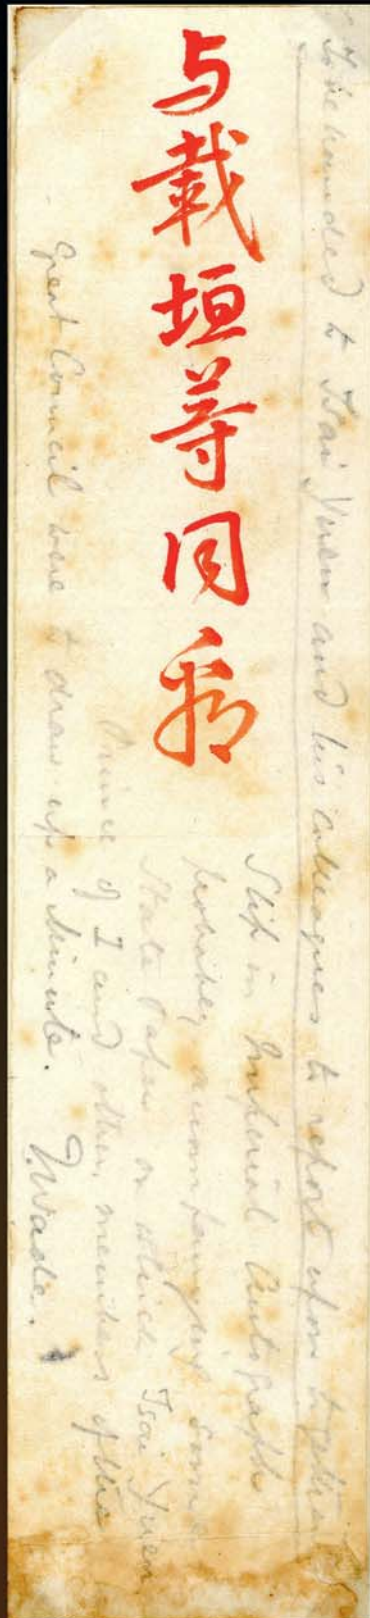 与載垣等同看
To be handed to Tsai Yuen and his colleagues to report upon together
Slip in Imperial Autograph
probably accompanying some
State Paper on which Tsai Yuen
Prince of I and other members of the
Great Council were to draw up a Minute. T. Wade.